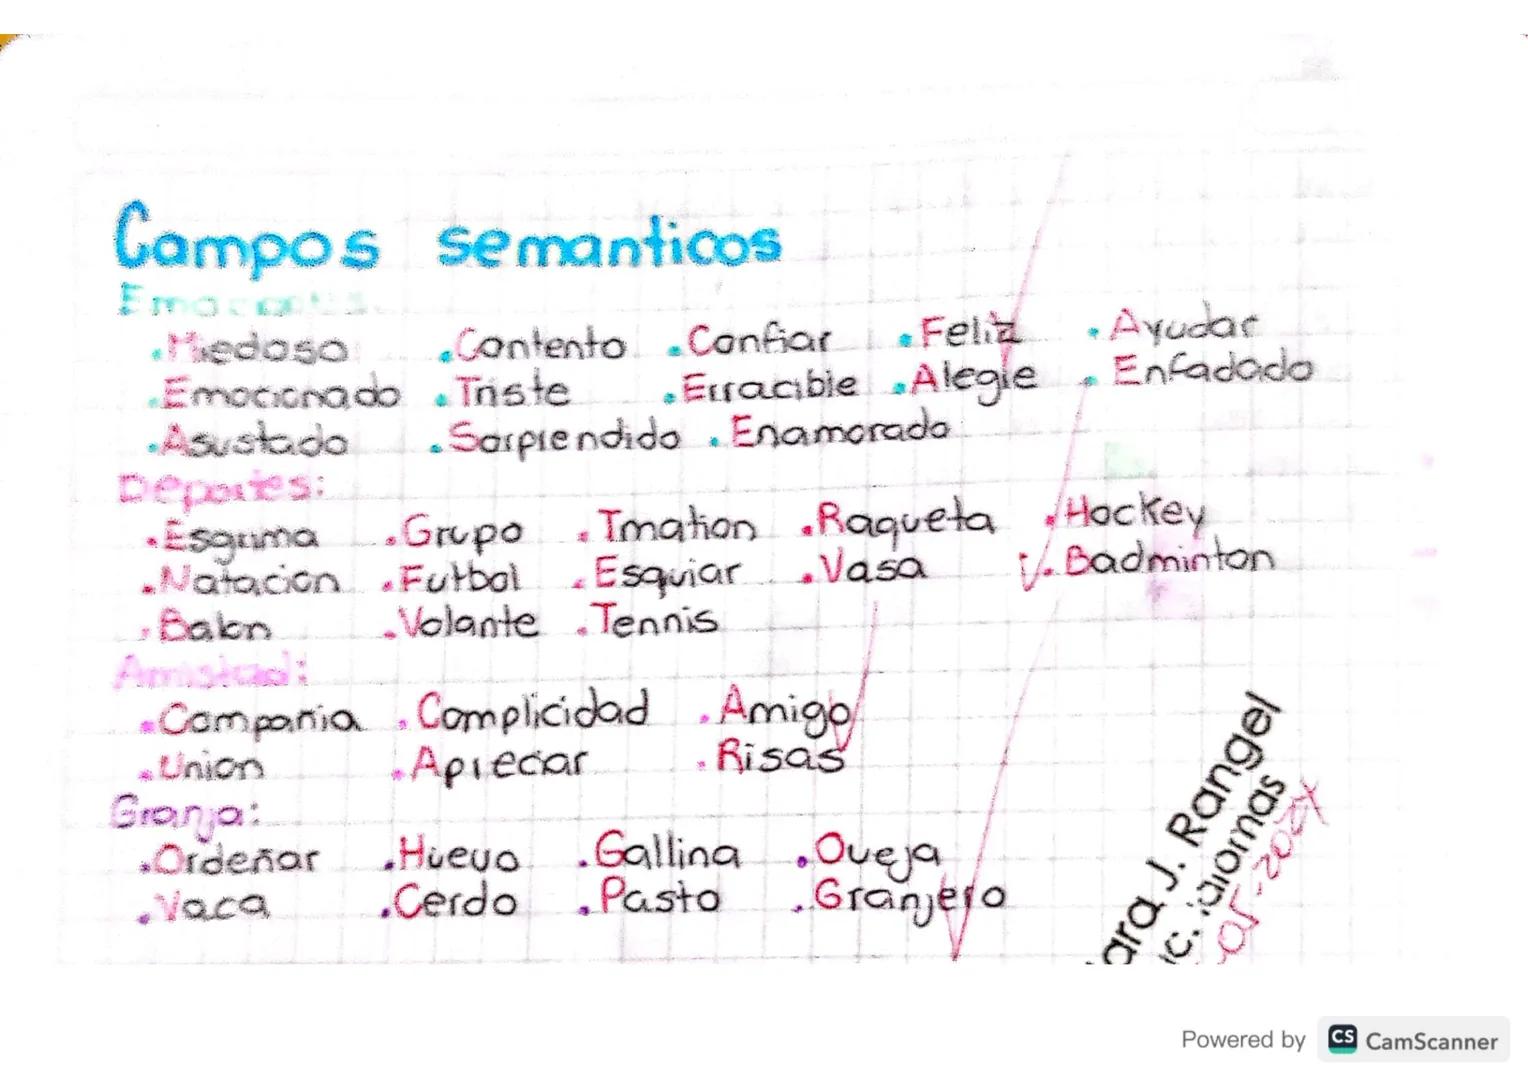 Campos semanticos
Emociones:
.Miedoso .Contento .Confiar .Feliz .Ayudar
.Emocionado .Triste .Erracible .Alegre .Enfadado
.Asustado .Sorprendido .Enamorado
Deportes:
.Esgrima .Grupo .Imation .Raqueta .Hockey
.Natacion .Futbol .Esquiar .Vasa .Badminton
.Balon .Volante .Tennis
Amistad:
.Compañia .Complicidad .Amigo
.Union .Apreciar .Risas
Granja:
.Ordeñar .Huevo .Gallina .Oveja
.Vaca .Cerdo .Pasto .Granjero
ara J. Rangel
ic. idiomas
Powered by CS CamScanner